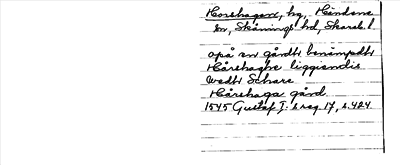 Horshagen, hg, Händene
sn, Skånings hd, Skarab. l.
opå en gårdt benämpdt
Hårshaghe liggiendis
wedt Schare
Hårshaga gård
1545 Gustaf I: s reg. 17, s. 424